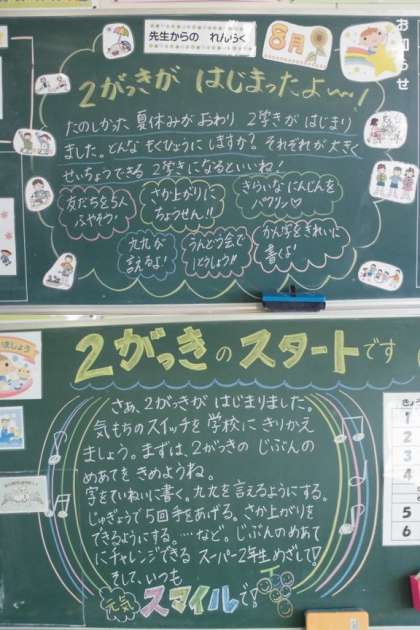 先生からの れんらく
8月
お知らせ
2がっきが はじまったよ〜!
たのしかった 夏休みがおわり 2学きが はじまり
ました。どんな もくひょうに しますか? それぞれが 大きく
せいちょうできる 2学きに なるといいね!
友だちを5人
ふやそう!
さか上がりに
ちょうせん!!
きらいな にんじんを
パクリン♡
九九が
言えるよ!
うんどう会で
1とうしょう!!
かん字をきれいに
書くぞ!
2がっきのスタートです
さあ、2がっきが はじまりました。
気もちのスイッチを 学校に きりかえ
ましょう。まずは、2がっきの じぶんの
めあてを きめようね。
字をていねいに書く。九九を言えるようにする。
じゅぎょうで5回手をあげる。さか上がりを
できるようにする。…など。じぶんのめあて
にチャレンジできる スーパー2年生めざして!
そして、いつも
元気 スマイルで!
1
2
3
4
5
6